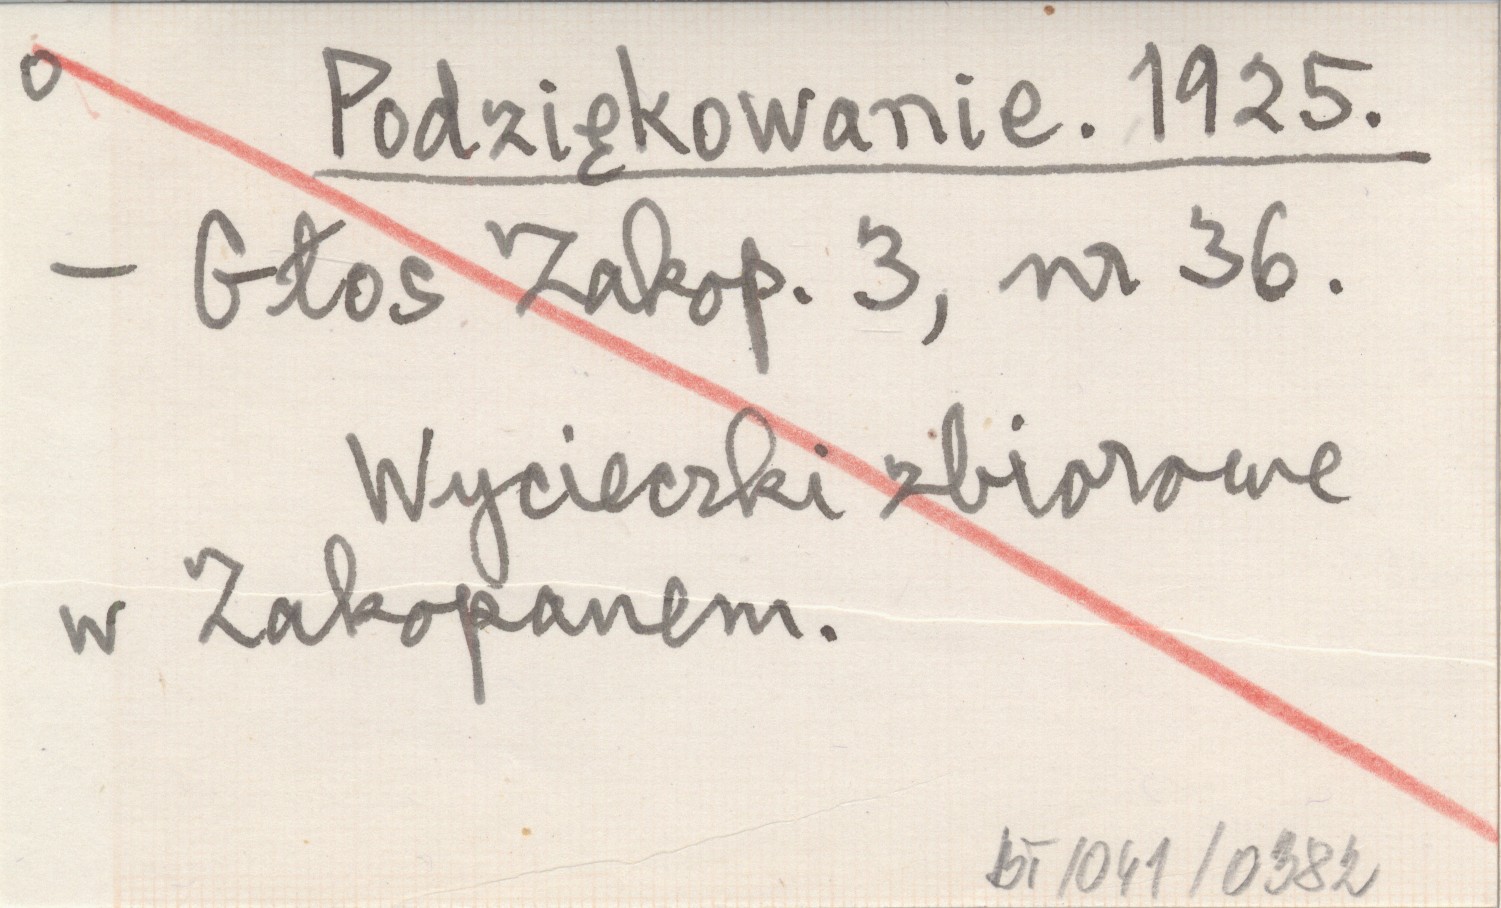 o Podziękowanie. 1925.
– Głos Zakop. 3, nr 36.
Wycieczki zbiorowe
w Zakopanem.
/041/0382